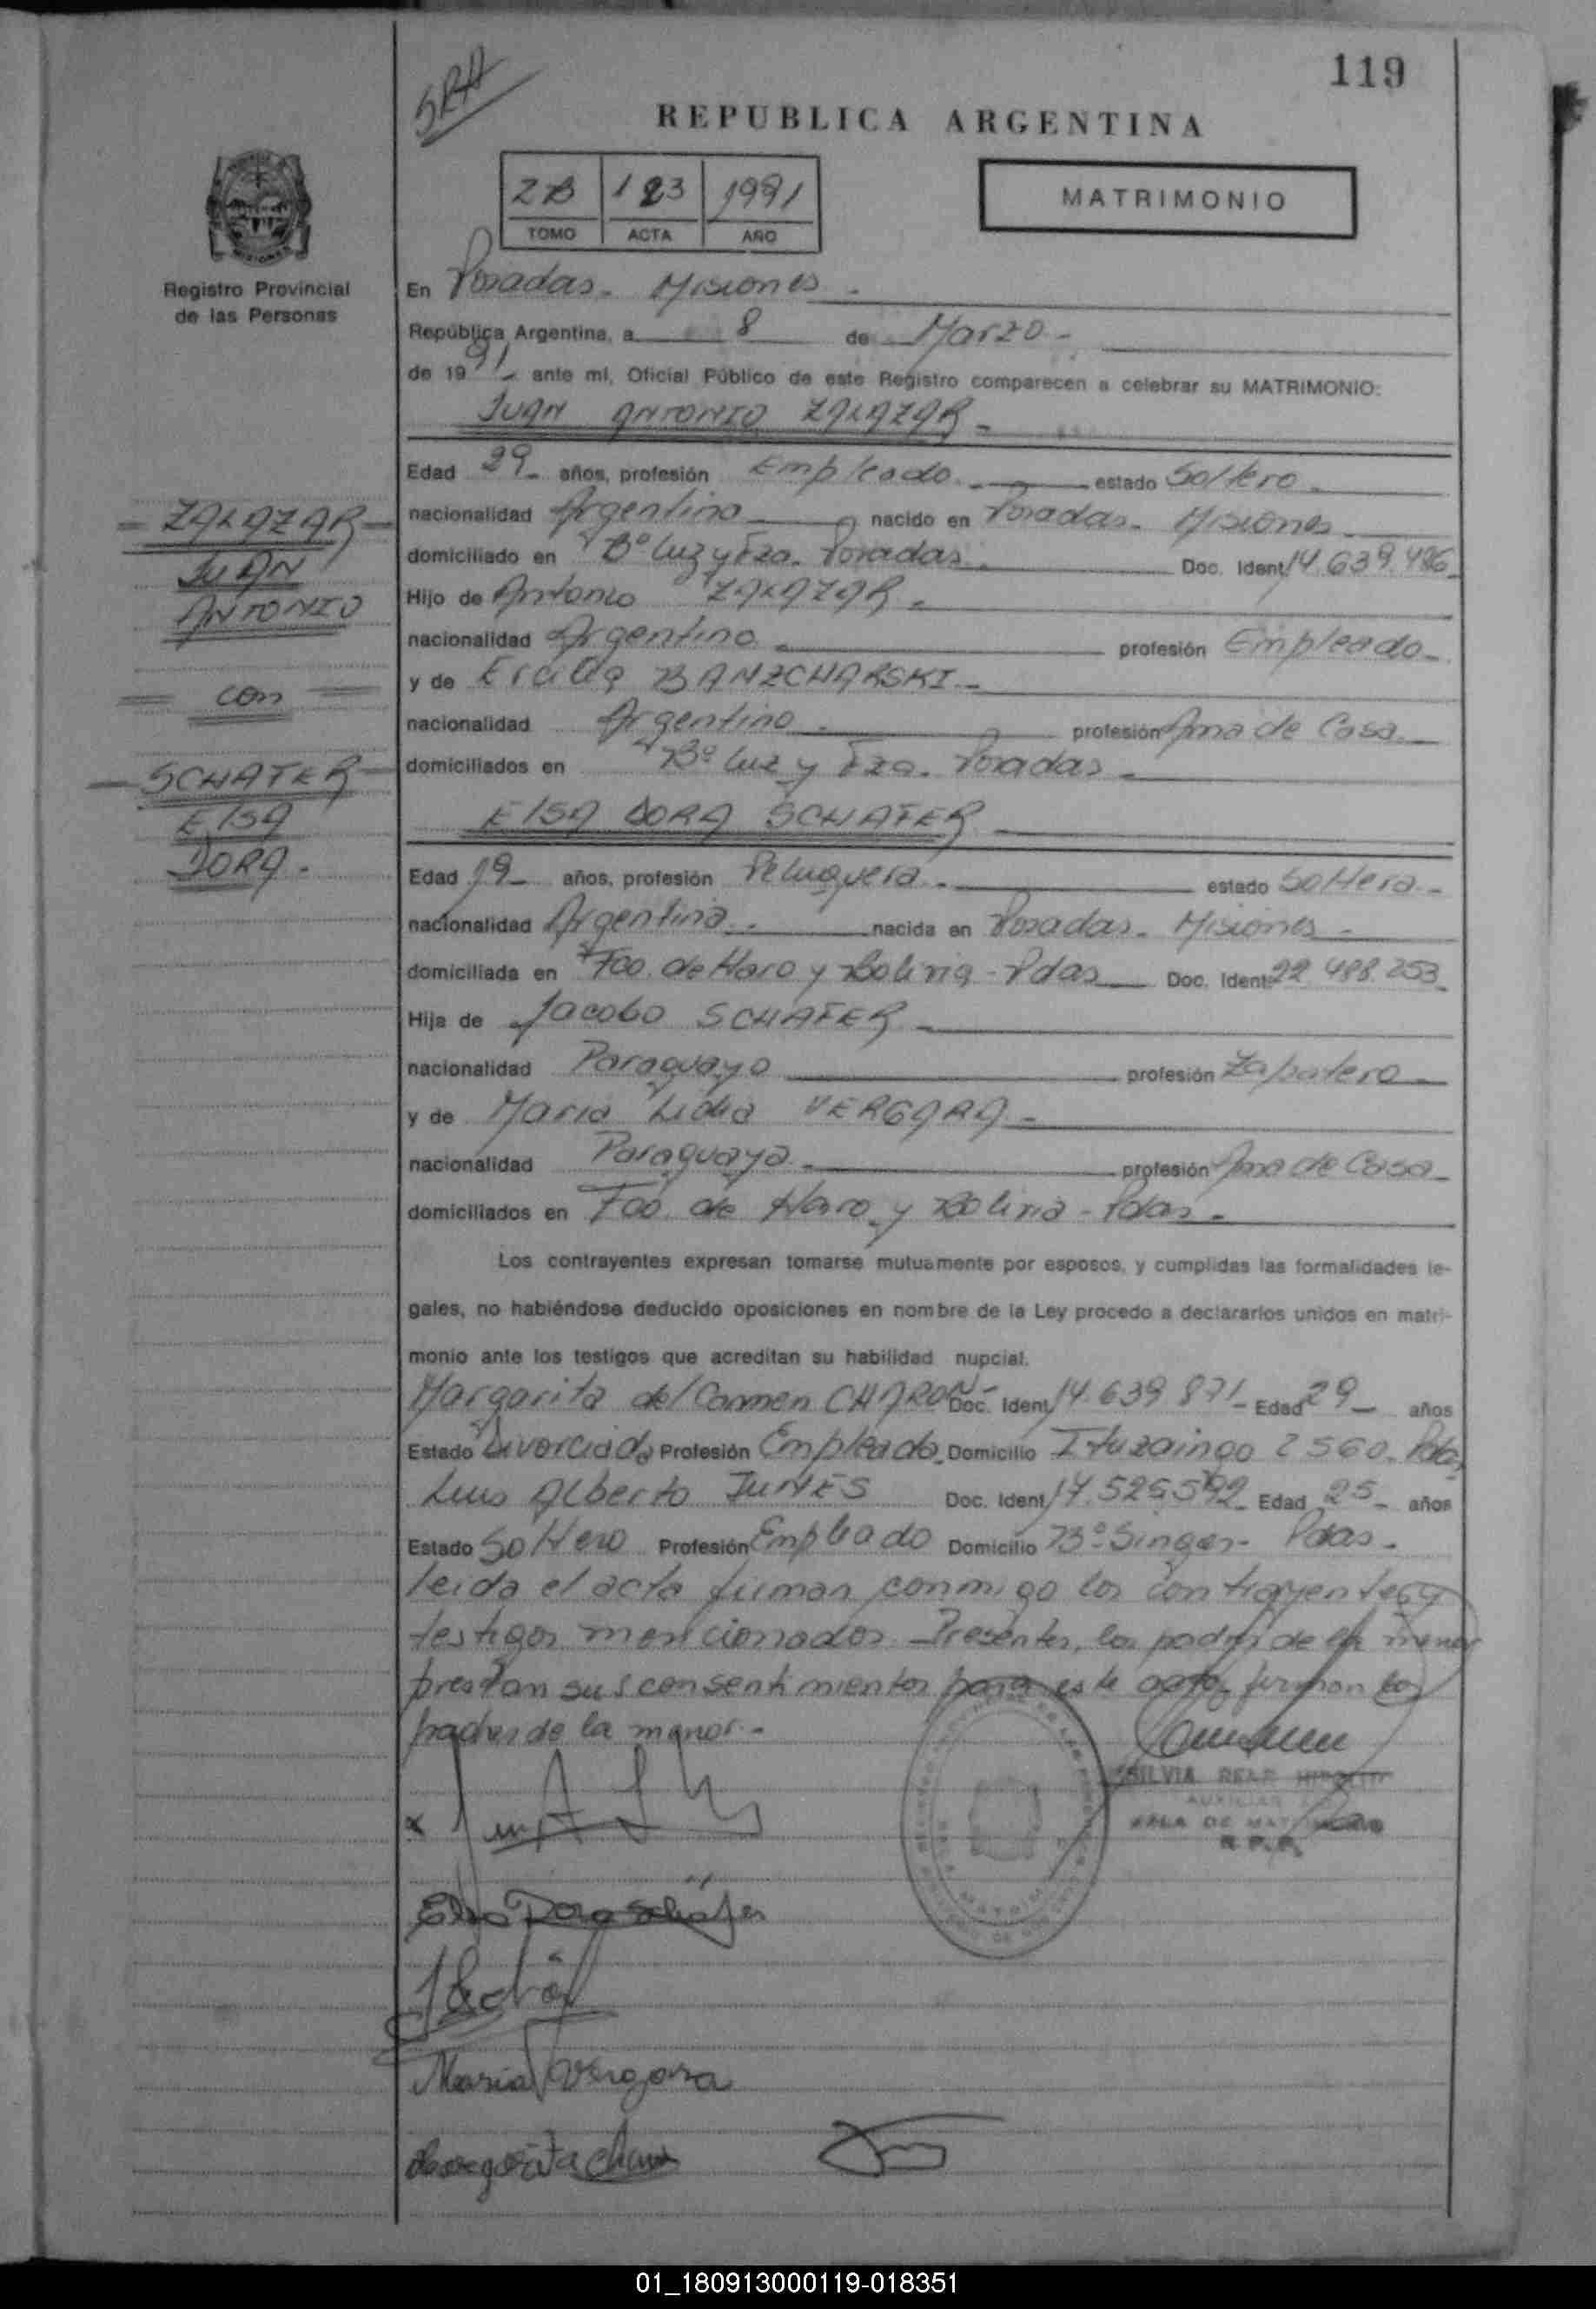 119
SRA
REPUBLICA ARGENTINA
2B 123 1991
TOMO ACTA AÑO
MATRIMONIO
Registro Provincial
de las Personas
En Posadas. Misiones.
República Argentina, a 8 de Marzo.
de 1991 ante mí, Oficial Público de este Registro comparecen a celebrar su MATRIMONIO:
JUAN ANTONIO ZALAZAR.
Edad 29 años, profesión Empleado. estado Soltero.
nacionalidad Argentina nacido en Posadas. Misiones.
domiciliado en Bº Luz y Fza. Posadas. Doc. Ident. 14.639.486
Hijo de Antonio ZALAZAR.
nacionalidad Argentino profesión Empleado.
y de Ercilia BANZCHARSKI.
nacionalidad Argentina. profesión Ama de Casa.
domiciliados en Bº Luz y Fza. Posadas.
ZALAZAR
JUAN
ANTONIO
con
SCHAFER
ELSA
DORA.
ELSA DORA SCHAFER
Edad 19 años, profesión Peluquera. estado Soltera.
nacionalidad Argentina. nacida en Posadas. Misiones.
domiciliada en Fco. de Haro y Bolivia - Pdas Doc. Ident. 22.488.253
Hija de Jacobo SCHAFER
nacionalidad Paraguayo profesión Zapatero
y de Maria Lidia VERGARA.
nacionalidad Paraguaya. profesión Ama de Casa
domiciliados en Fco. de Haro y Bolivia - Pdas.
Los contrayentes expresan tomarse mutuamente por esposos, y cumplidas las formalidades le-
gales, no habiéndose deducido oposiciones en nombre de la Ley procedo a declararlos unidos en matri-
monio ante los testigos que acreditan su habilidad nupcial.
Margarita del Carmen CHARON Doc. Ident. 14.639.871 Edad 29 años
Estado Divorciada Profesión Empleada Domicilio Ituzaingo 2560. Pdas
Luis Alberto JUNES Doc. Ident. 17.525.592 Edad 25 años
Estado Soltero Profesión Empleado Domicilio Bº Singer - Pdas.
leida el acta firman conmigo los contrayentes y
testigos mencionados. Presentes, los padres de la menor
prestan sus consentimientos para este acto, firman los
padres de la menor.
SILVIA
AUXILIAR
SALA DE MATRIMONIO
R.P.P.
Elsa Dora Schäfer
Maria Vergara
Margarita Charon
01_180913000119-018351